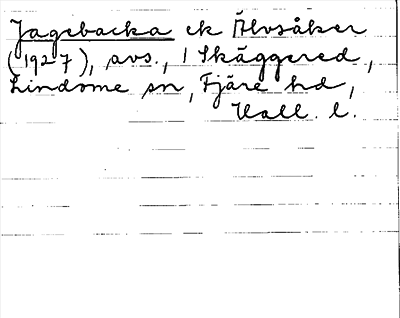 Jagebacka ek Älvsåker
(1927), avs., 1 Skäggered,
Lindome sn, Fjäre hd,
Hall. l.